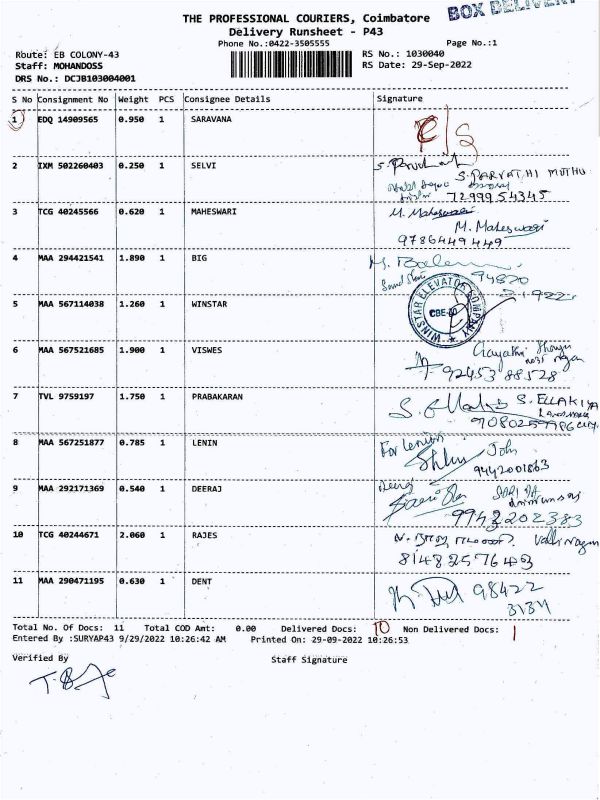 BOX DELIVERY
THE PROFESSIONAL COURIERS, Coimbatore
Delivery Runsheet - P43
Phone No.:0422-3505555
Page No.:1
Route: EB COLONY-43
RS No.: 1030040
Staff: MOHANDOSS
RS Date: 29-Sep-2022
DRS No.: DCJB103004001
S No Consignment No Weight PCS Consignee Details Signature
1 EDQ 14909565 0.950 1 SARAVANA
2 IXM 502260403 0.250 1 SELVI
S. PARVATHI MUTHU
7299954345
3 TCG 40245566 0.620 1 MAHESWARI
M. Maheswari
M. Maheswari
9786449449
4 MAA 294421541 1.890 1 BIG
94870
21922
5 MAA 567114038 1.260 1 WINSTAR
WINSTAR ELEVATOR COMPANY
CBE-
6 MAA 567521685 1.900 1 VISWES
Gayathri
92453 88528
7 TVL 9759197 1.750 1 PRABAKARAN
S. ELLAKIYA
9080259986
8 MAA 567251877 0.785 1 LENIN
For Lenin
John
9442001863
9 MAA 292171369 0.540 1 DEERAJ
Deeraj
9943202383
10 TCG 40244671 2.060 1 RAJES
Valli Nagar
8148257643
11 MAA 290471195 0.630 1 DENT
98422
3134
Total No. Of Docs: 11 Total COD Amt: 0.00 Delivered Docs: 10 Non Delivered Docs: 1
Entered By :SURYAP43 9/29/2022 10:26:42 AM Printed On: 29-09-2022 10:26:53
Verified By
Staff Signature